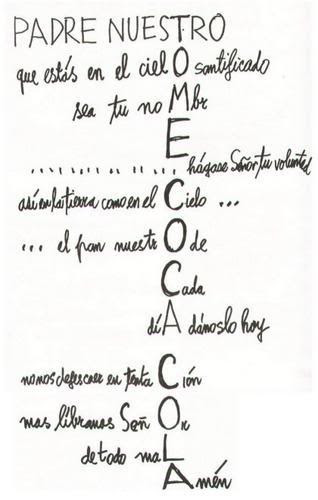 PADRE NUESTRO
que estás en el cielO santificado
sea tu noMbr
E
........... hágase Señor tu voluntad
así en la tierra como en el Cielo ...
... el pan nuestrO de
Cada
díA dánoslo hoy
no nos dejes caer en tentaCión
mas líbranos SeñOr
de todo maL
Amén